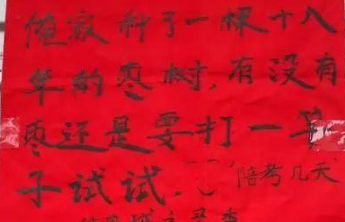 俺家种了一棵十八
年的枣树，有没有
枣还是要打一竿
子试试。
陪考几天